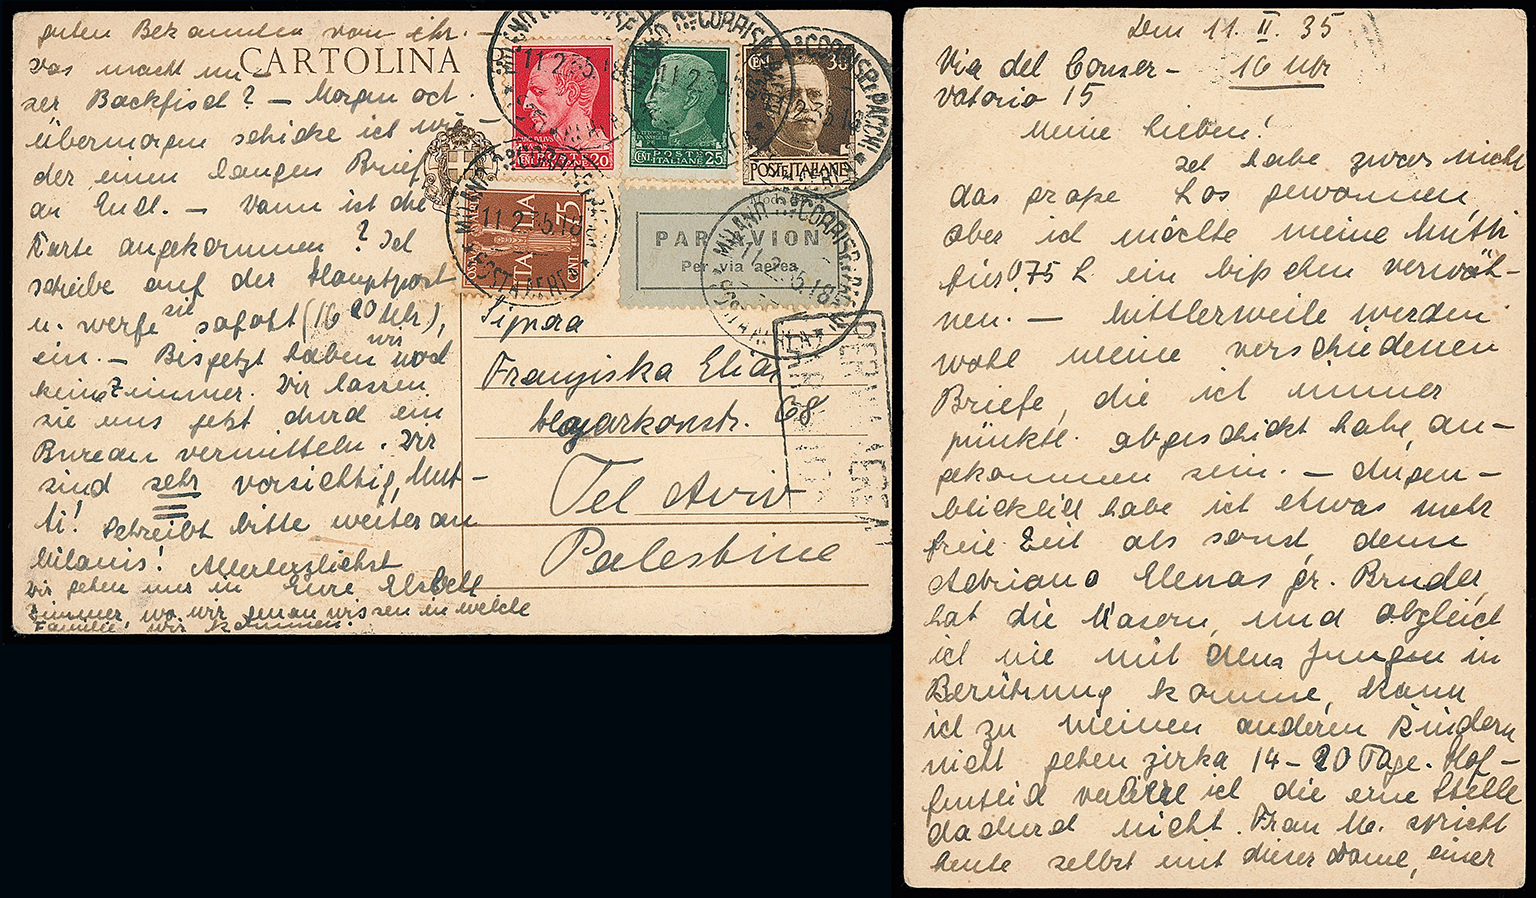 Den 11. II. 35
Via del Conser-
vatorio 15
16 Uhr
Meine Lieben!
Ich habe zwar nicht
das große Los gewonnen,
aber ich möchte meine Mutti
für 0,75 L ein bißchen verwöh-
nen. — Mittlerweile werden
wohl meine verschiedenen
Briefe, die ich immer
pünktl. abgeschickt habe, an-
gekommen sein. — Augen-
blicklich habe ich etwas mehr
freie Zeit als sonst, denn
Adriano Elenas gr. Bruder,
hat die Masern, und obgleich
ich nie mit dem Jungen in
Berührung komme, kann
ich zu meinen anderen Kindern
nicht gehen zirka 14-20 Tage. Hof-
fentlich verliere ich die eine Stelle
dadurch nicht. Frau M. spricht
heute selbst mit dieser Dame, einer
guten Bekannten von ihr. —
Was macht un-
ser Backfisch? — Morgen od.
übermorgen schicke ich wie-
der einen langen Brief
an Euch. — Wann ist die
Karte angekommen? Ich
schreibe auf der Hauptpost
u. werfe sie sofort (16 20 Uhr),
ein. — Bis jetzt haben wir noch
kein Zimmer. Wir lassen
sie uns jetzt durch ein
Bureau vermitteln. Wir
sind sehr vorsichtig, Mut-
ti! Schreibt bitte weiter an
Milanis! Allerherzlichst
Eure Elsbeth
Wir gehen nur in
Zimmer, wo wir genau wissen in welche
Familie wir kommen.
CARTOLINA
CENT. 20
POSTE ITALIANE
CENT. 25
POSTE ITALIANE
CENT 30
POSTE ITALIANE
POSTA AEREA
ITALIA
CENT. 75
MILANO CORRISP. PACCHI
11.2.35.18
POSTA AEREA
PAR AVION
Per via aerea
Signora
Franziska Elias
Hayarkonstr. 68
Tel Aviv
Palestine